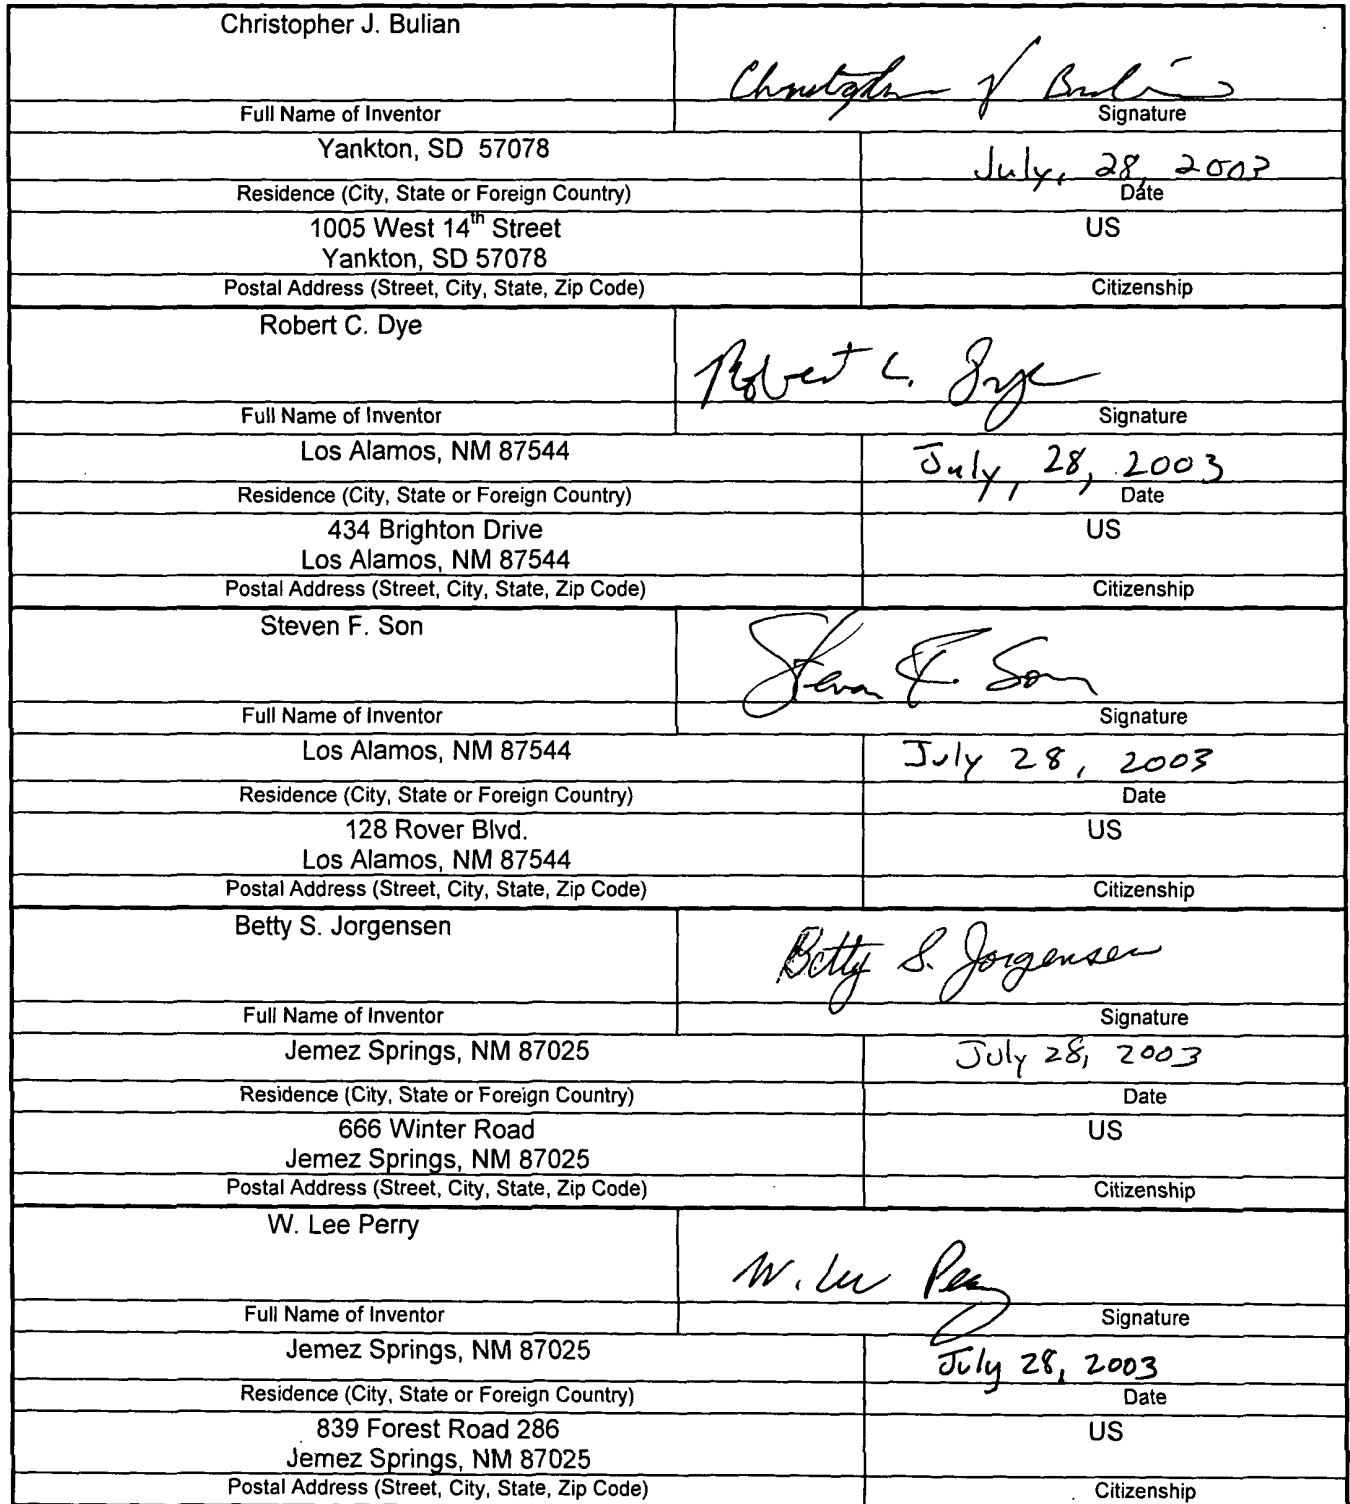 Christopher J. Bulian
Christopher J Bulian
Full Name of Inventor Signature
Yankton, SD 57078 July, 28, 2003
Residence (City, State or Foreign Country) Date
1005 West 14th Street US
Yankton, SD 57078
Postal Address (Street, City, State, Zip Code) Citizenship
Robert C. Dye
Robert C. Dye
Full Name of Inventor Signature
Los Alamos, NM 87544 July, 28, 2003
Residence (City, State or Foreign Country) Date
434 Brighton Drive US
Los Alamos, NM 87544
Postal Address (Street, City, State, Zip Code) Citizenship
Steven F. Son
Steven F. Son
Full Name of Inventor Signature
Los Alamos, NM 87544 July 28, 2003
Residence (City, State or Foreign Country) Date
128 Rover Blvd. US
Los Alamos, NM 87544
Postal Address (Street, City, State, Zip Code) Citizenship
Betty S. Jorgensen
Betty S. Jorgensen
Full Name of Inventor Signature
Jemez Springs, NM 87025 July 28, 2003
Residence (City, State or Foreign Country) Date
666 Winter Road US
Jemez Springs, NM 87025
Postal Address (Street, City, State, Zip Code) Citizenship
W. Lee Perry
W. Lee Perry
Full Name of Inventor Signature
Jemez Springs, NM 87025 July 28, 2003
Residence (City, State or Foreign Country) Date
839 Forest Road 286 US
Jemez Springs, NM 87025
Postal Address (Street, City, State, Zip Code) Citizenship